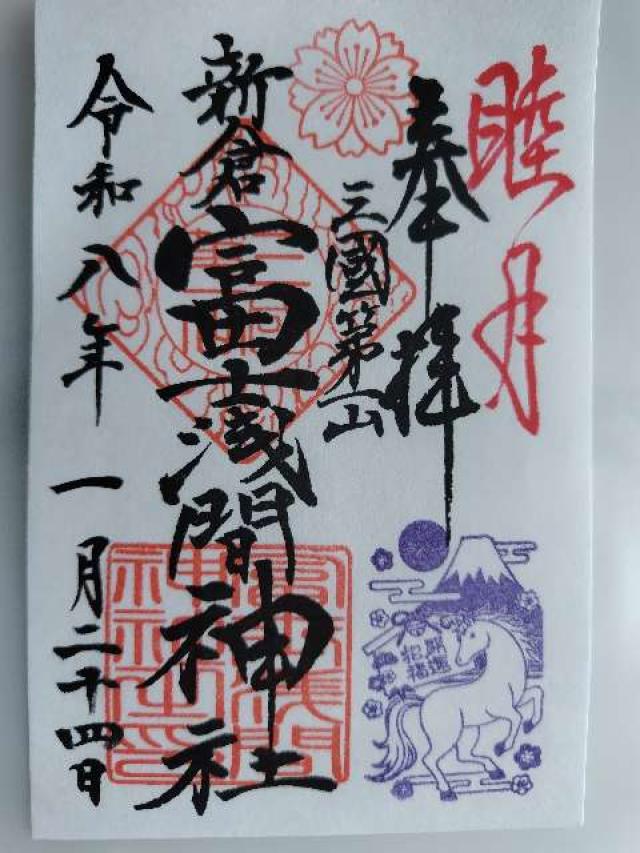 睦月
奉拝
三國第一山
新倉富士浅間神社
令和八年 一月二十四日
開運
招福